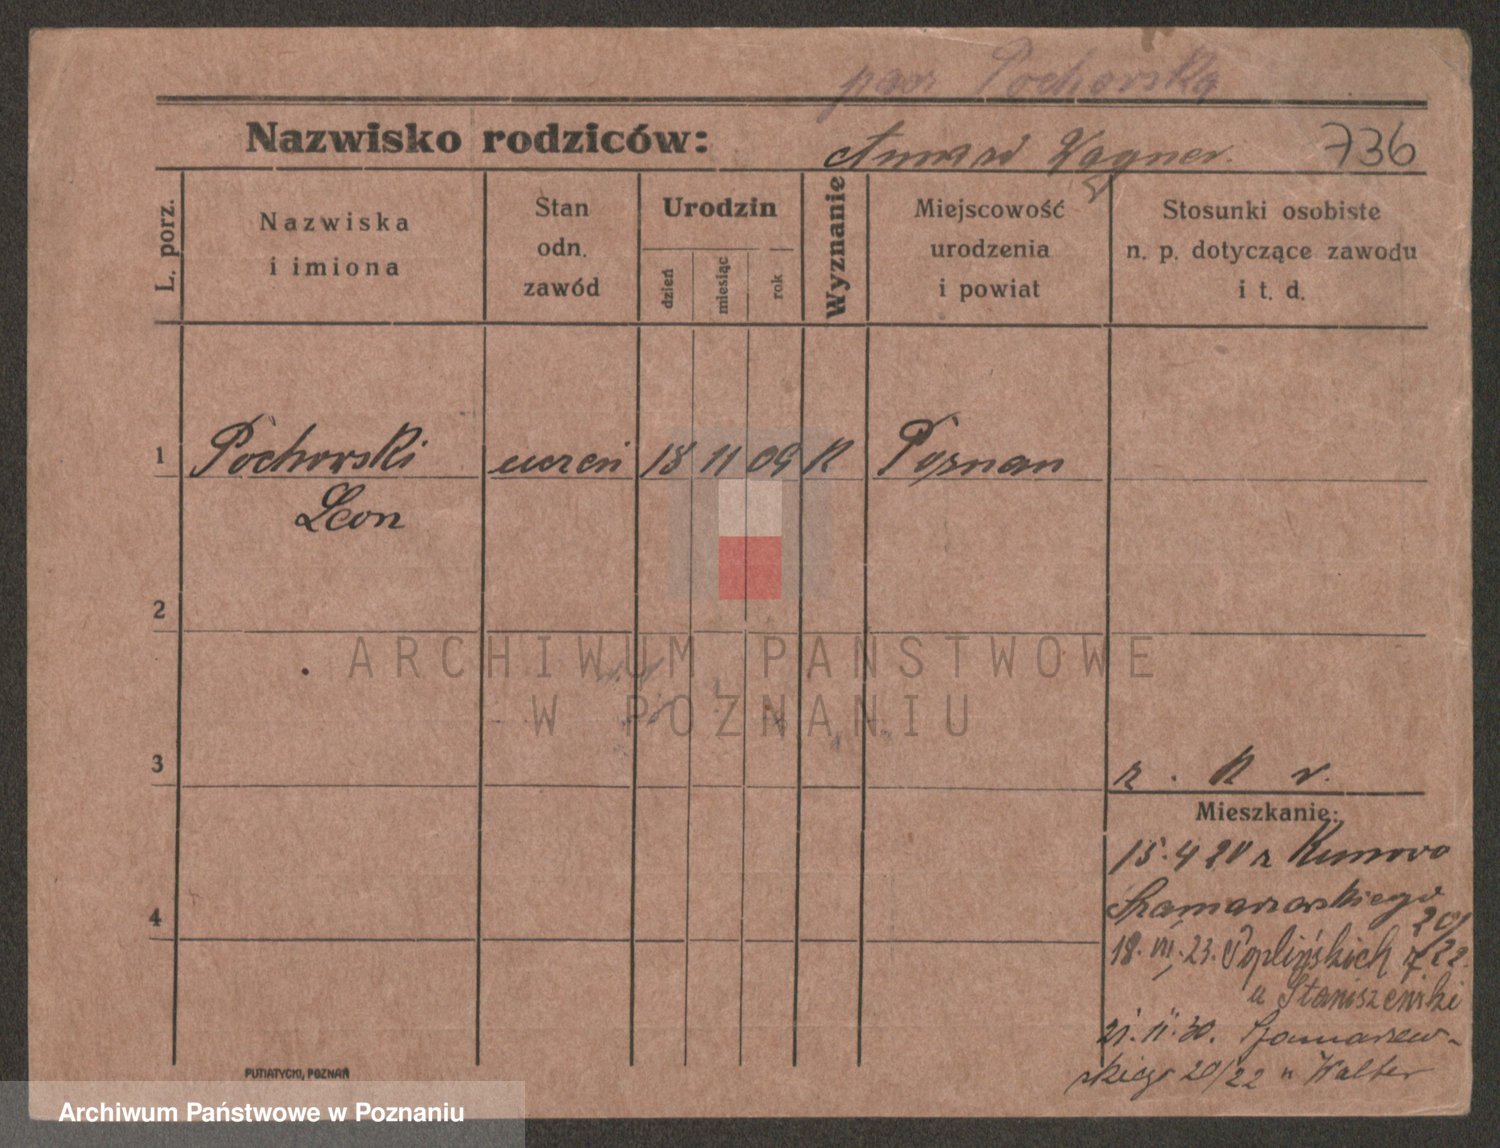 Pochorska
Nazwisko rodziców:
Wagner.
736
L. porz.
Nazwiska
i imiona
Stan
odn.
zawód
Urodzin
dzień
miesiąc
rok
Wyznanie
Miejscowość
urodzenia
i powiat
Stosunki osobiste
n. p. dotyczące zawodu
i t. d.
1 Pochorski uczeń 18 11 09 K Poznan
Leon
2
ARCHIWUM PAŃSTWOWE
W POZNANIU
3
r. K v.
Mieszkanie:
15.4 20 z Kunowo
Szamarzewskiego
20/22
4
18. VII. 23. Poplińskich 7
u Staniszewski
21. 11. 30. Szamarzew-
skiego 20/22 u Walter
PUTIATYCKI, POZNAŃ
Archiwum Państwowe w Poznaniu